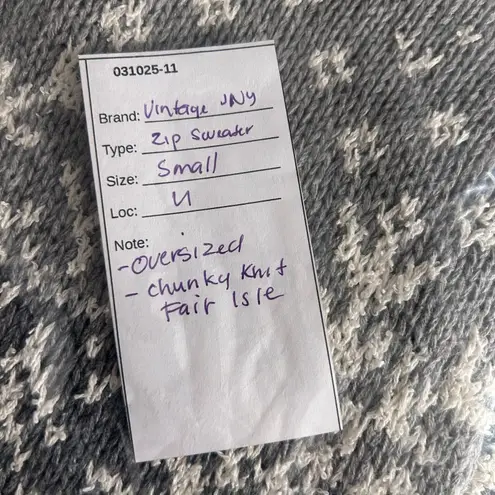 031025-11
Brand: Vintage JNY
Type: Zip Sweater
Size: Small
Loc: U
Note:
- Oversized
- Chunky Knit
Fair Isle